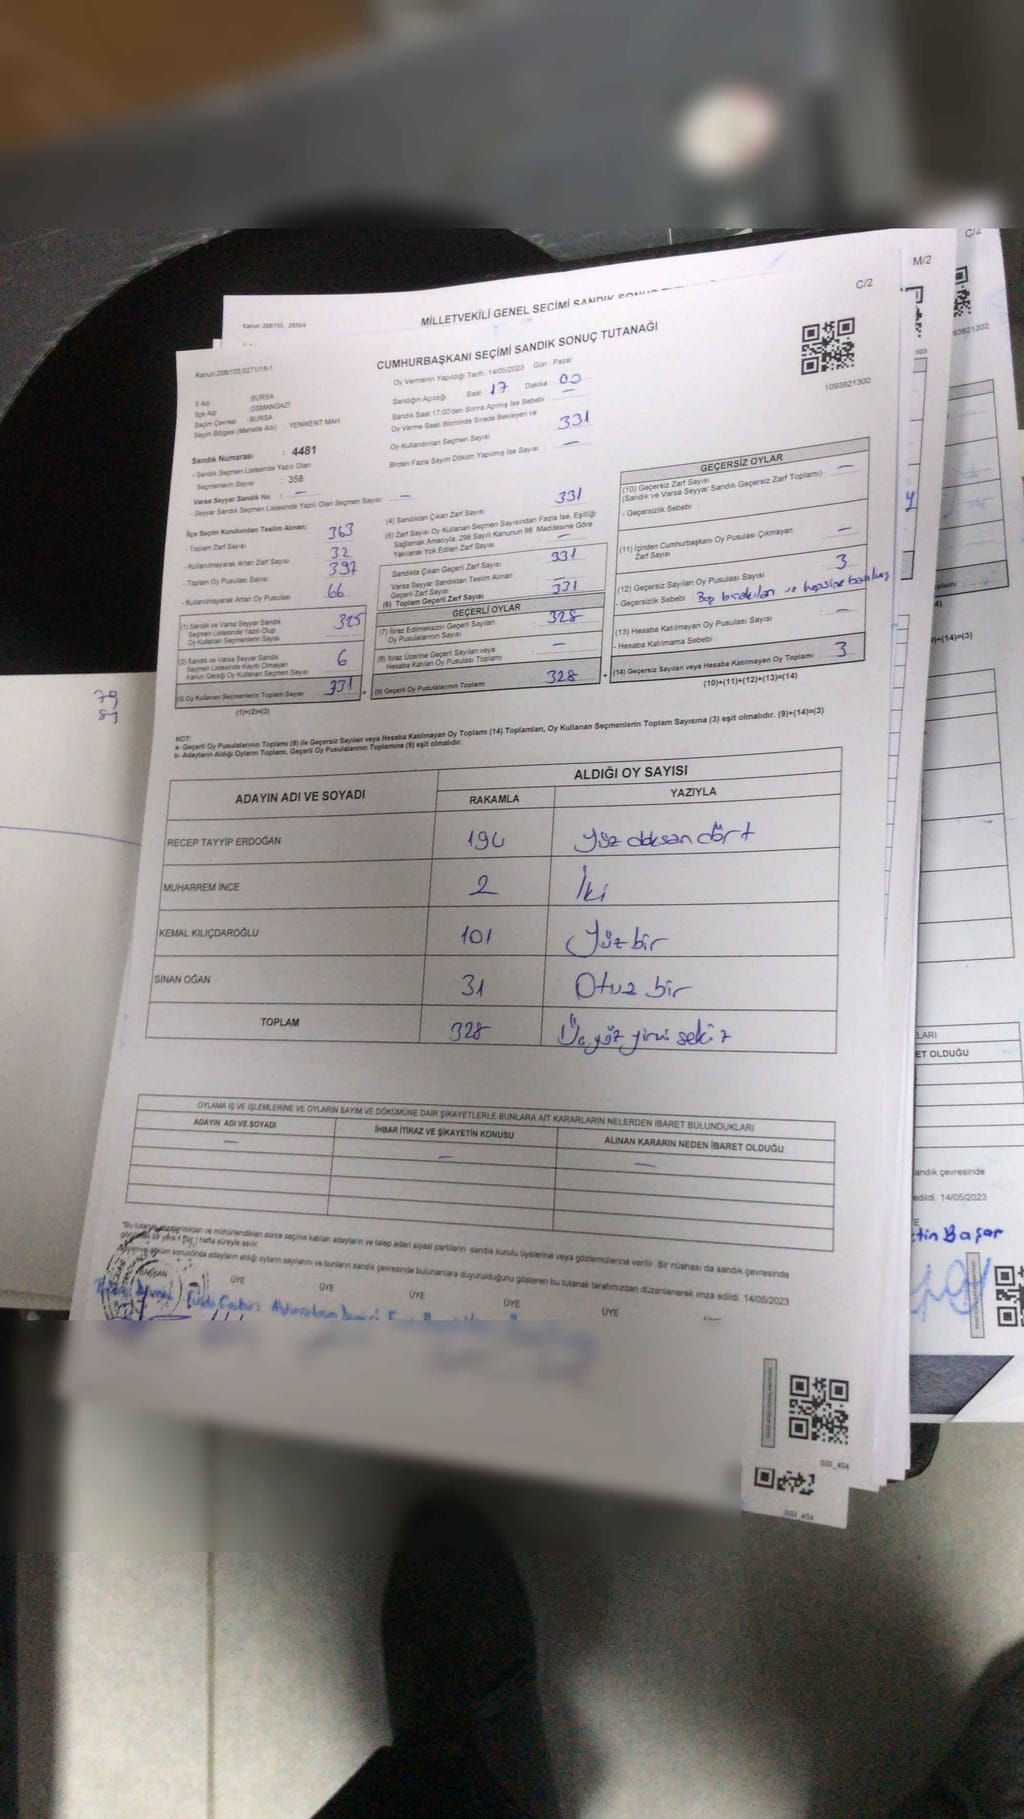 C/2
M/2
Kanun: 298/105, 2839/4
MİLLETVEKİLİ GENEL SEÇİMİ SANDIK SONUÇ
C/2
CUMHURBAŞKANI SEÇİMİ SANDIK SONUÇ TUTANAĞI
Kanun:298/105,6271/18-1
1093821300
93821302
Oy Vermenin Yapıldığı Tarih 14/05/2023 Gün : Pazar
Sandığın Açıldığı Saat : 17 Dakika 00
Sandık Saat 17:00'den Sonra Açılmış İse Sebebi : —
Oy Verme Saati Bitiminde Sırada Bekleyen ve
Oy Kullandırılan Seçmen Sayısı 331
Birden Fazla Sayım Döküm Yapılmış İse Sayısı : —
İl Adı : BURSA
İlçe Adı : OSMANGAZİ
Seçim Çevresi : BURSA
Seçim Bölgesi (Mahalle Adı) : YENİKENT MAH
Sandık Numarası : 4481
- Sandık Seçmen Listesinde Yazılı Olan
Seçmenlerin Sayısı : 358
Varsa Seyyar Sandık No : —
- Seyyar Sandık Seçmen Listesinde Yazılı Olan Seçmen Sayısı : —
İlçe Seçim Kurulundan Teslim Alınan;
- Toplam Zarf Sayısı 363
- Kullanılmayarak Artan Zarf Sayısı 32
- Toplam Oy Pusulası Sayısı 397
- Kullanılmayarak Artan Oy Pusulası 66
(1) Sandık ve Varsa Seyyar Sandık
Seçmen Listesinde Yazılı Olup
Oy Kullanan Seçmenlerin Sayısı 325
(2) Sandık ve Varsa Seyyar Sandık
Seçmen Listesinde Kayıtlı Olmayan
Kanun Gereği Oy Kullanan Seçmen Sayısı 6
(3) Oy Kullanan Seçmenlerin Toplam Sayısı 331
(1)+(2)=(3)
(4) Sandıktan Çıkan Zarf Sayısı 331
(5) Zarf Sayısı Oy Kullanan Seçmen Sayısından Fazla İse, Eşitliği
Sağlamak Amacıyla; 298 Sayılı Kanunun 98. Maddesine Göre
Yakılarak Yok Edilen Zarf Sayısı —
Sandıkta Çıkan Geçerli Zarf Sayısı 331
Varsa Seyyar Sandıktan Teslim Alınan
Geçerli Zarf Sayısı —
(6) Toplam Geçerli Zarf Sayısı 331
GEÇERLİ OYLAR
(7) İtiraz Edilmeksizin Geçerli Sayılan
Oy Pusulalarının Sayısı 328
(8) İtiraz Üzerine Geçerli Sayılan veya
Hesaba Katılan Oy Pusulası Toplamı —
(9) Geçerli Oy Pusulalarının Toplamı 328
GEÇERSİZ OYLAR
(10) Geçersiz Zarf Sayısı
(Sandık ve Varsa Seyyar Sandık Geçersiz Zarf Toplamı) —
- Geçersizlik Sebebi :
(11) İçinden Cumhurbaşkanı Oy Pusulası Çıkmayan
Zarf Sayısı —
(12) Geçersiz Sayılan Oy Pusulası Sayısı 3
- Geçersizlik Sebebi : Boş bırakılan ve hepsine basılmış
(13) Hesaba Katılmayan Oy Pusulası Sayısı —
- Hesaba Katılmama Sebebi :
(14) Geçersiz Sayılan veya Hesaba Katılmayan Oy Toplamı 3
(10)+(11)+(12)+(13)=(14)
NOT:
a- Geçerli Oy Pusulalarının Toplamı (9) ile Geçersiz Sayılan veya Hesaba Katılmayan Oy Toplamı (14) Toplamları, Oy Kullanan Seçmenlerin Toplam Sayısına (3) eşit olmalıdır. (9)+(14)=(3)
b- Adayların Aldığı Oyların Toplamı, Geçerli Oy Pusulalarının Toplamına (9) eşit olmalıdır.
79
81
ADAYIN ADI VE SOYADI ALDIĞI OY SAYISI
RAKAMLA YAZIYLA
RECEP TAYYİP ERDOĞAN 194 Yüz doksan dört
MUHARREM İNCE 2 İki
KEMAL KILIÇDAROĞLU 101 Yüz bir
SİNAN OĞAN 31 Otuz bir
TOPLAM 328 Üçyüz yirmi sekiz
OYLAMA İŞ VE İŞLEMLERİNE VE OYLARIN SAYIM VE DÖKÜMÜNE DAİR ŞİKAYETLERLE BUNLARA AİT KARARLARIN NELERDEN İBARET BULUNDUKLARI
ADAYIN ADI VE SOYADI İHBAR İTİRAZ VE ŞİKAYETİN KONUSU ALINAN KARARIN NEDEN İBARET OLDUĞU
— — —
LARI
ET OLDUĞU
andık çevresinde
edildi. 14/05/2023
tin Başar
düzenlenerek imza edildi. 14/05/2023
BAŞKAN ÜYE ÜYE ÜYE ÜYE ÜYE
SSI_404
SSI_404